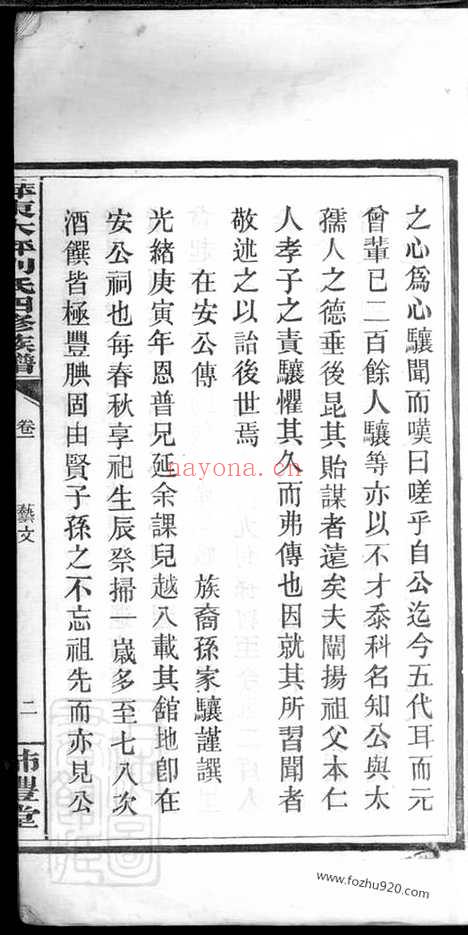 之心爲心驤聞而嘆曰嗟乎自公迄今五代耳而元
曾輩已二百餘人驤等亦以不才忝科名知公與太
孺人之德垂後昆其貽謀者遠矣夫闡揚祖父本仁
人孝子之責驤懼其久而弗傳也因就其所習聞者
敬述之以詒後世焉
在安公傳　族裔孫家驤謹譔
光緒庚寅年恩普兄延余課兒越八載其館地卽在
安公祠也每春秋享祀生辰祭掃一歲多至七八次
酒饌皆極豐腆固由賢子孫之不忘祖先而亦見公
劉氏四修族譜
卷一
藝文
二
豐堂
nayona.cn
www.fozhu920.com